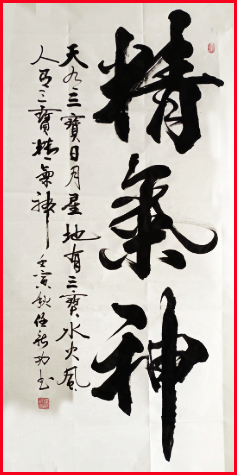 精氣神
天有三寶日月星地有三寶水火風
人有三寶精氣神 壬寅秋 书